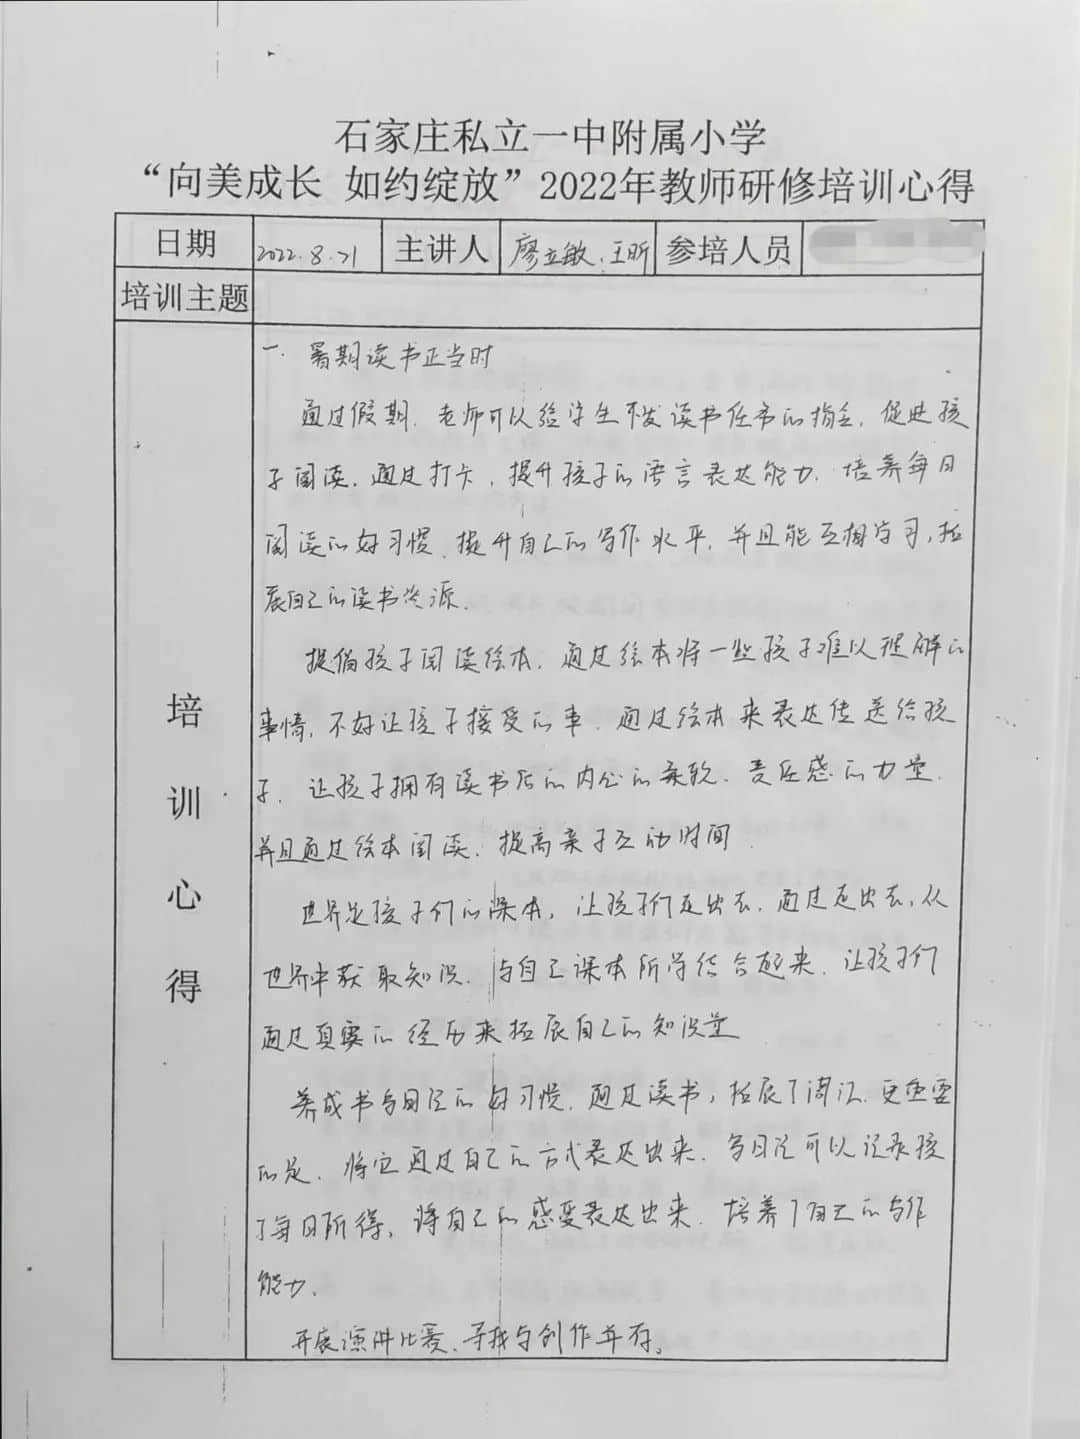 石家庄私立一中附属小学
“向美成长 如约绽放”2022年教师研修培训心得
日期 2022.8.21 主讲人 廖立敏、王昕 参培人员
培训主题
培训心得
一. 暑期读书正当时
通过假期，老师可以给学生下发读书任务的指令，促进孩
子阅读，通过打卡，提升孩子的语言表达能力，培养每日
阅读的好习惯，提升自己的写作水平，并且能互相学习，拓
展自己的读书资源.
提倡孩子阅读绘本，通过绘本将一些孩子难以理解的
事情，不好让孩子接受的事，通过绘本来表达传送给孩
子，让孩子拥有读书后的内心的柔软、责任感的力量，
并且通过绘本阅读，提高亲子互动时间.
世界是孩子们的课本，让孩子们走出去，通过走出去，从
世界中获取知识，与自己课本所学结合起来，让孩子们
通过真实的经历来拓展自己的知识量
养成书写日记的好习惯，通过读书，拓展了词汇，更重要
的是，将它通过自己的方式表达出来，写日记可以记录孩
子每日所得，将自己的感受表达出来，培养了自己的写作
能力.
开展演讲比赛，寻找与创作并存。